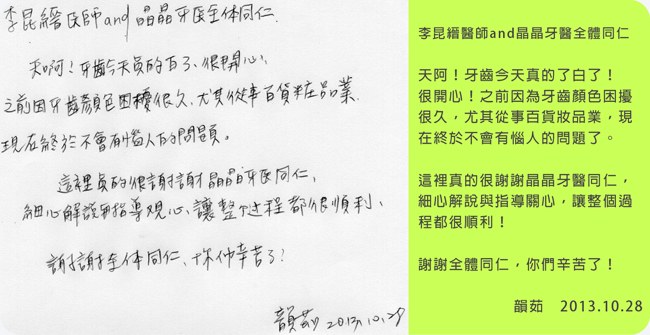 李昆縉醫師and晶晶牙醫全体同仁
天啊！牙齒今天真的白了、很開心、
之前因牙齒顏色困擾很久、尤其從事百貨粧品業、
現在終於不會有惱人的問題。
這裡真的很謝謝晶晶牙医同仁、
細心解說與指導關心、讓整個過程都很順利、
謝謝全体同仁、你们辛苦了！
韻茹 2013.10.28
李昆縉醫師and晶晶牙醫全體同仁
天阿！牙齒今天真的了白了！
很開心！之前因為牙齒顏色困擾
很久，尤其從事百貨妝品業，現
在終於不會有惱人的問題了。
這裡真的很謝謝晶晶牙醫同仁，
細心解說與指導關心，讓整個過
程都很順利！
謝謝全體同仁，你們辛苦了！
韻茹 2013.10.28